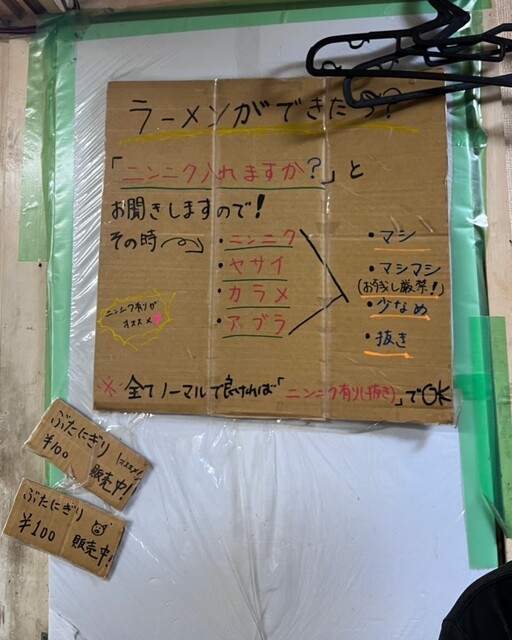 ラーメンができたら?
「ニンニク入れますか?」と
お聞きしますので!
その時
・ニンニク
・ヤサイ
・カラメ
・アブラ
・マシ
・マシマシ
(お残し厳禁!)
・少なめ
・抜き
ニンニク有りが
オススメ
※全てノーマルで良ければ「ニンニク有り(抜き)」でOK
ぶたにぎり
¥100
販売中!!
ぶたにぎり
¥100
販売中!